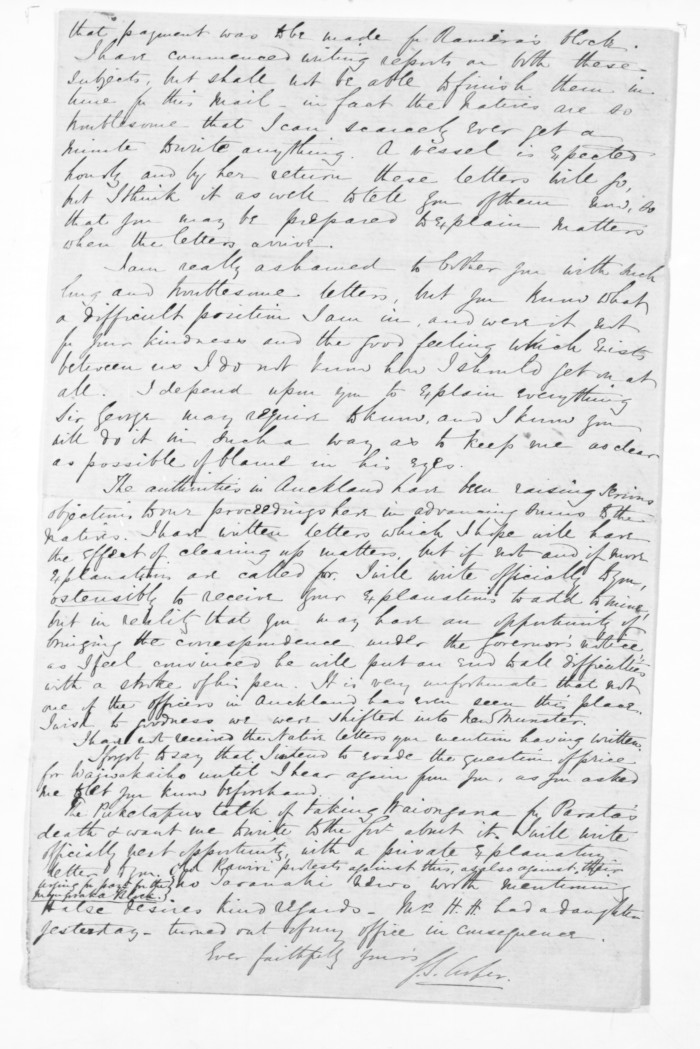 that payment was to be made for Ramira's block.
I have commenced writing reports on both these
subjects, but shall not be able to finish them in
time for this mail - in fact the Natives are so
troublesome that I can scarcely ever get a
minute to write anything. A vessel is expected
hourly and by her return these letters will go,
but I think it as well to tell you of them now, so
that you may be prepared to explain matters
when the letters arrive.
I am really ashamed to bother you with such
long and troublesome letters, but you know what
a difficult position I am in, and were it not
for your kindness and the good feeling which exists
between us I do not know how I should get on at
all. I depend upon you to explain everything
Sir George may require to know, and I know you
will do it in such a way as to keep me as clear
as possible of blame in his eyes.
The authorities in Auckland have been raising serious
objections to our proceedings here in advancing to the
Natives. I have written letters which I hope will have
the effect of clearing up matters, but if not and if more
explanations are called for, I will write officially to you,
ostensibly to receive your explanations to add to mine,
but in reality that you may have an opportunity of
bringing the correspondence under the Governor's notice,
as I feel convinced he will put an end to all difficulties
with a stroke of his pen. It is very unfortunate that not
one of the officers in Auckland has even seen this place.
I wish to goodness we were shifted into New Munster.
I have not received the Native letters you mention having written.
I forgot to say that I intend to evade the question of price
for Waiwakaiho until I hear again from you, as you asked
me to let you know beforehand.
The Puketapus talk of taking Waiongana for Parata's
death & want me to write to the Govt about it. I will write
officially next opportunity, with a private explanatory
letter to you. Raniri protests against this, as also against their
asking for part for the
Block. no Taranaki news worth mentioning
Halse desires kind regards - Mrs H. H. had a daughter
yesterday - turned out of my office in consequence.
Ever faithfully yours